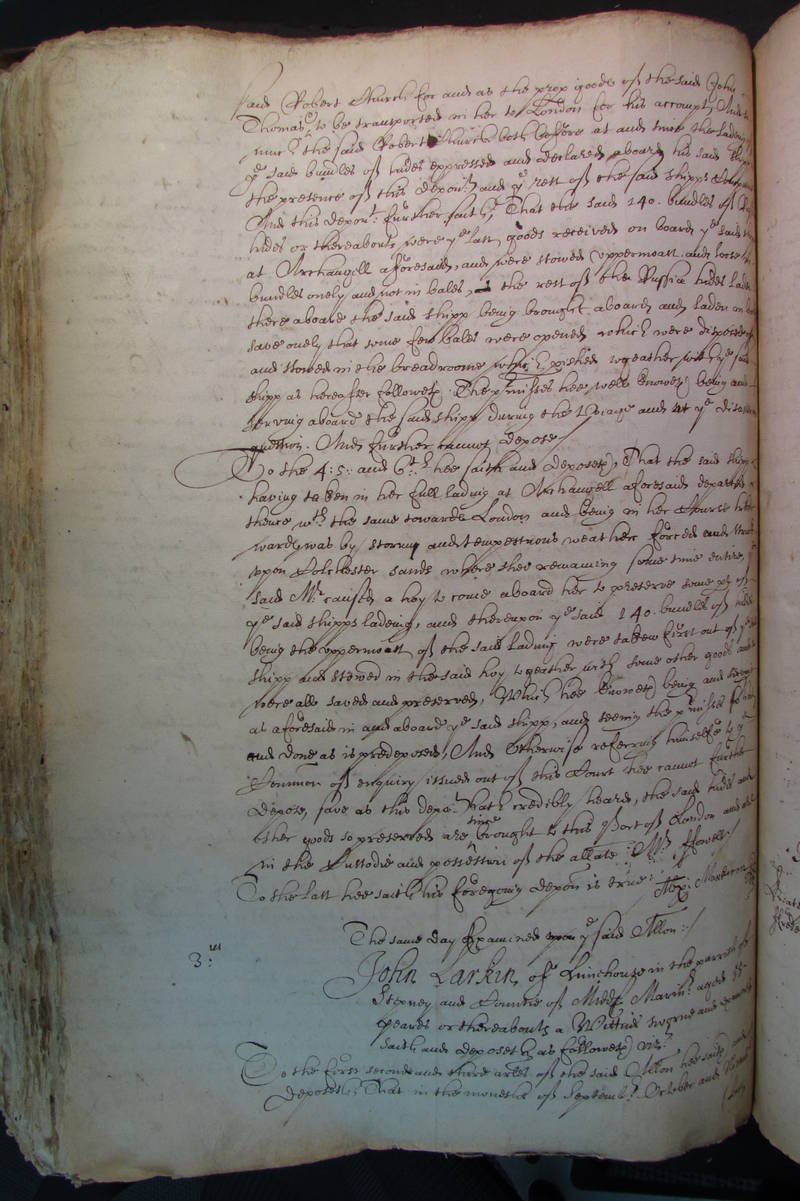 said Robert Church for and as the prop goods of the said John
Thomas, to be transported in her to London for his accompt, And
the said Robert Church both before at and since the ladeing
ye said bundles of hides expressed and declared aboard his said shipp
the presence of this depont. and ye rest of the said shipps Company
And this depont. further saith, That the said 140. bundles of
hides or thereabouts were ye last goods received on board ye said shipp
at Archangell aforesaid, and were stowed uppermoast and loose in
bundles onely and not in bales, the rest of the Russia hides laden
there aboard the said shipp being brought aboard and laden in bales
save onely that some few bales were opened which were disposed of
and stowed in the breadroome, which perished togeather with ye said
shipp as hereafter followeth. The pmisses hee well knoweth being and
serving aboard the said shipp during the Voiage and at ye disaster
And further cannot depose/
To the 4: 5: and 6th. hee saith and deposeth, That the said shipp
having taken in her full lading at Archangell aforesaid departed
thence wth the same towards London and being in her Course
wards was by stormy and tempestuous weather forced and
upon Colchester sands where shee remaining some time entire, ye
said Mr. caused a hoy to come aboard her to preserve some pt of
ye said shipps ladeing, and thereupon ye said 140. bundles of hides
being the uppermoast of the said lading were taken first out of ye
shipp and stowed in the said hoy togeather with some other goods and
were also saved and preserved, Which hee knoweth being and
as aforesaid in and aboard ye said shipp, and seeing the pmisses
and done as is predeposed, And Otherwise referring himselfe to ye
Common of enquiry issued out of this Court hee cannot further
depose, save as this depot. hath credibly heard, the said hides and
other goods so preserved are since brought to this Port of London and are
in the Custodie and possession of the allate Mr. Howell
To the last hee saith his foregoing depon is true:
The same day Examined upon ye said Allon:/
3.us
John Larkin, of Limehouse in the parrish of
Stepney and Countie of Middx Marinr. aged 55
yeares or thereabouts a Wittnes sworne and examined
saith and deposeth as followeth vizt.
To the first second and third arles of the said Allon hee saith and
deposeth, That in the moneths of Septembr. October and